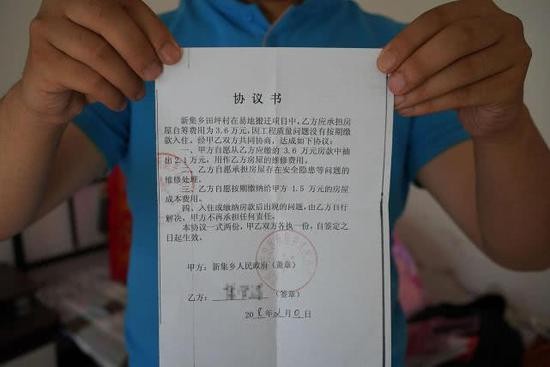 协议书
新集乡田坪村在易地搬迁项目中，乙方应承担房
屋自筹费用为3.6万元，因工程质量问题没有按期缴
款入住。经甲乙双方共同协商，达成如下协议：
一、甲方自愿从乙方应缴的 3.6 万元房款中抽
出2.1 万元，用作乙方房屋的维修费用。
二、乙方自愿承担房屋存在安全隐患等问题的
维修处理。
三、乙方自愿按期缴纳给甲方 1.5 万元的房屋
成本费用。
四、入住或缴纳房款后出现的问题，由乙方自行
解决，甲方不再承担任何责任。
本协议一式两份，甲乙双方各执一份，自签定之
日起生效。
甲方：新集乡人民政府（盖章）
乙方：（签章）
20 年 月 日